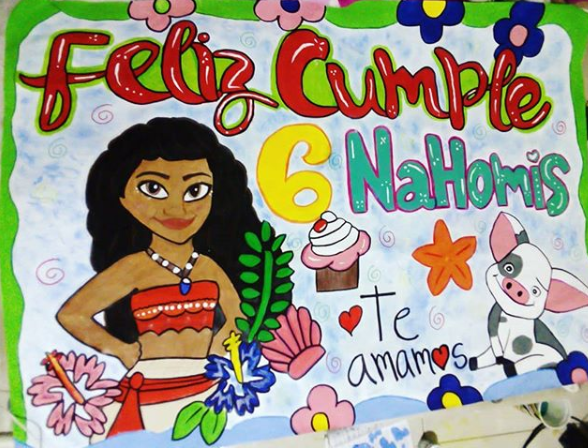 Feliz Cumple
6 NaHomis
Te
amamos